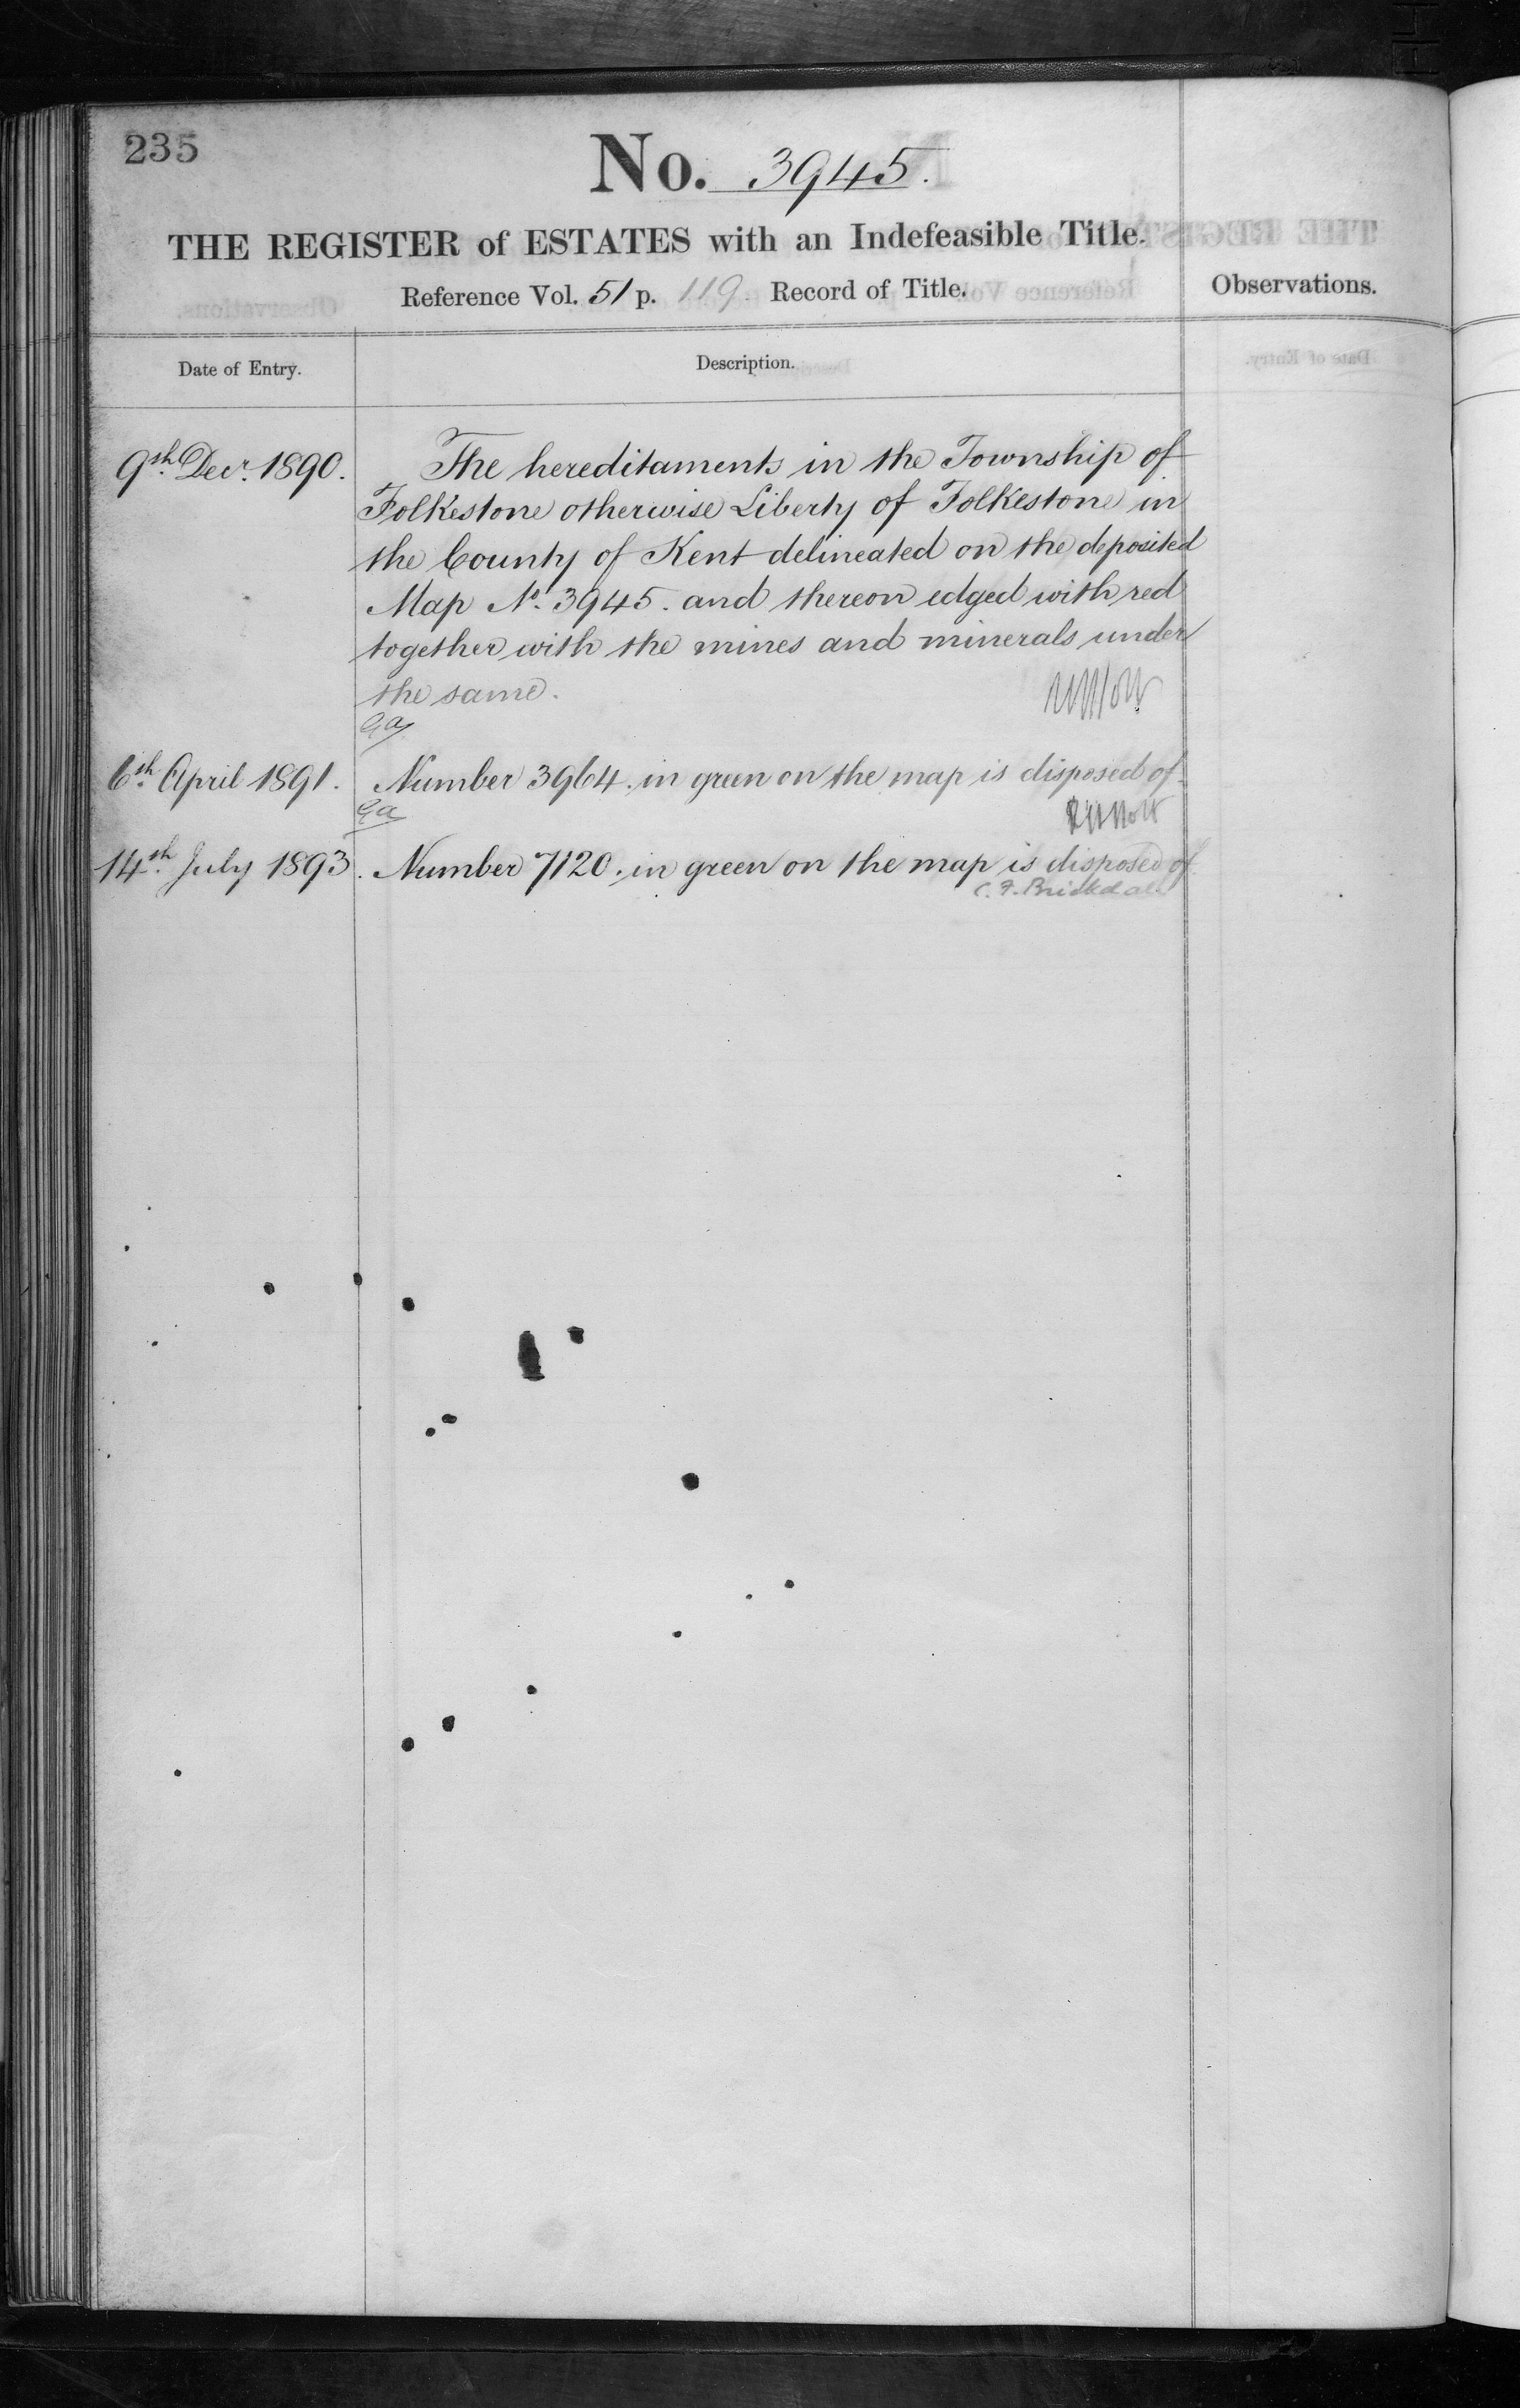 235
No. 3945.
THE REGISTER of ESTATES with an Indefeasible Title.
Reference Vol. 51 p. 119. Record of Title.
Observations.
Date of Entry.
Description.
9th Decr. 1890.
The hereditaments in the Township of
Folkestone otherwise Liberty of Folkestone in
the County of Kent delineated on the deposited
Map No. 3945. and thereon edged with red
together with the mines and minerals under
the same.
6th April 1891.
Number 3964. in green on the map is disposed of
14th July 1893.
Number 7120. in green on the map is disposed of
C. F. Brickdale